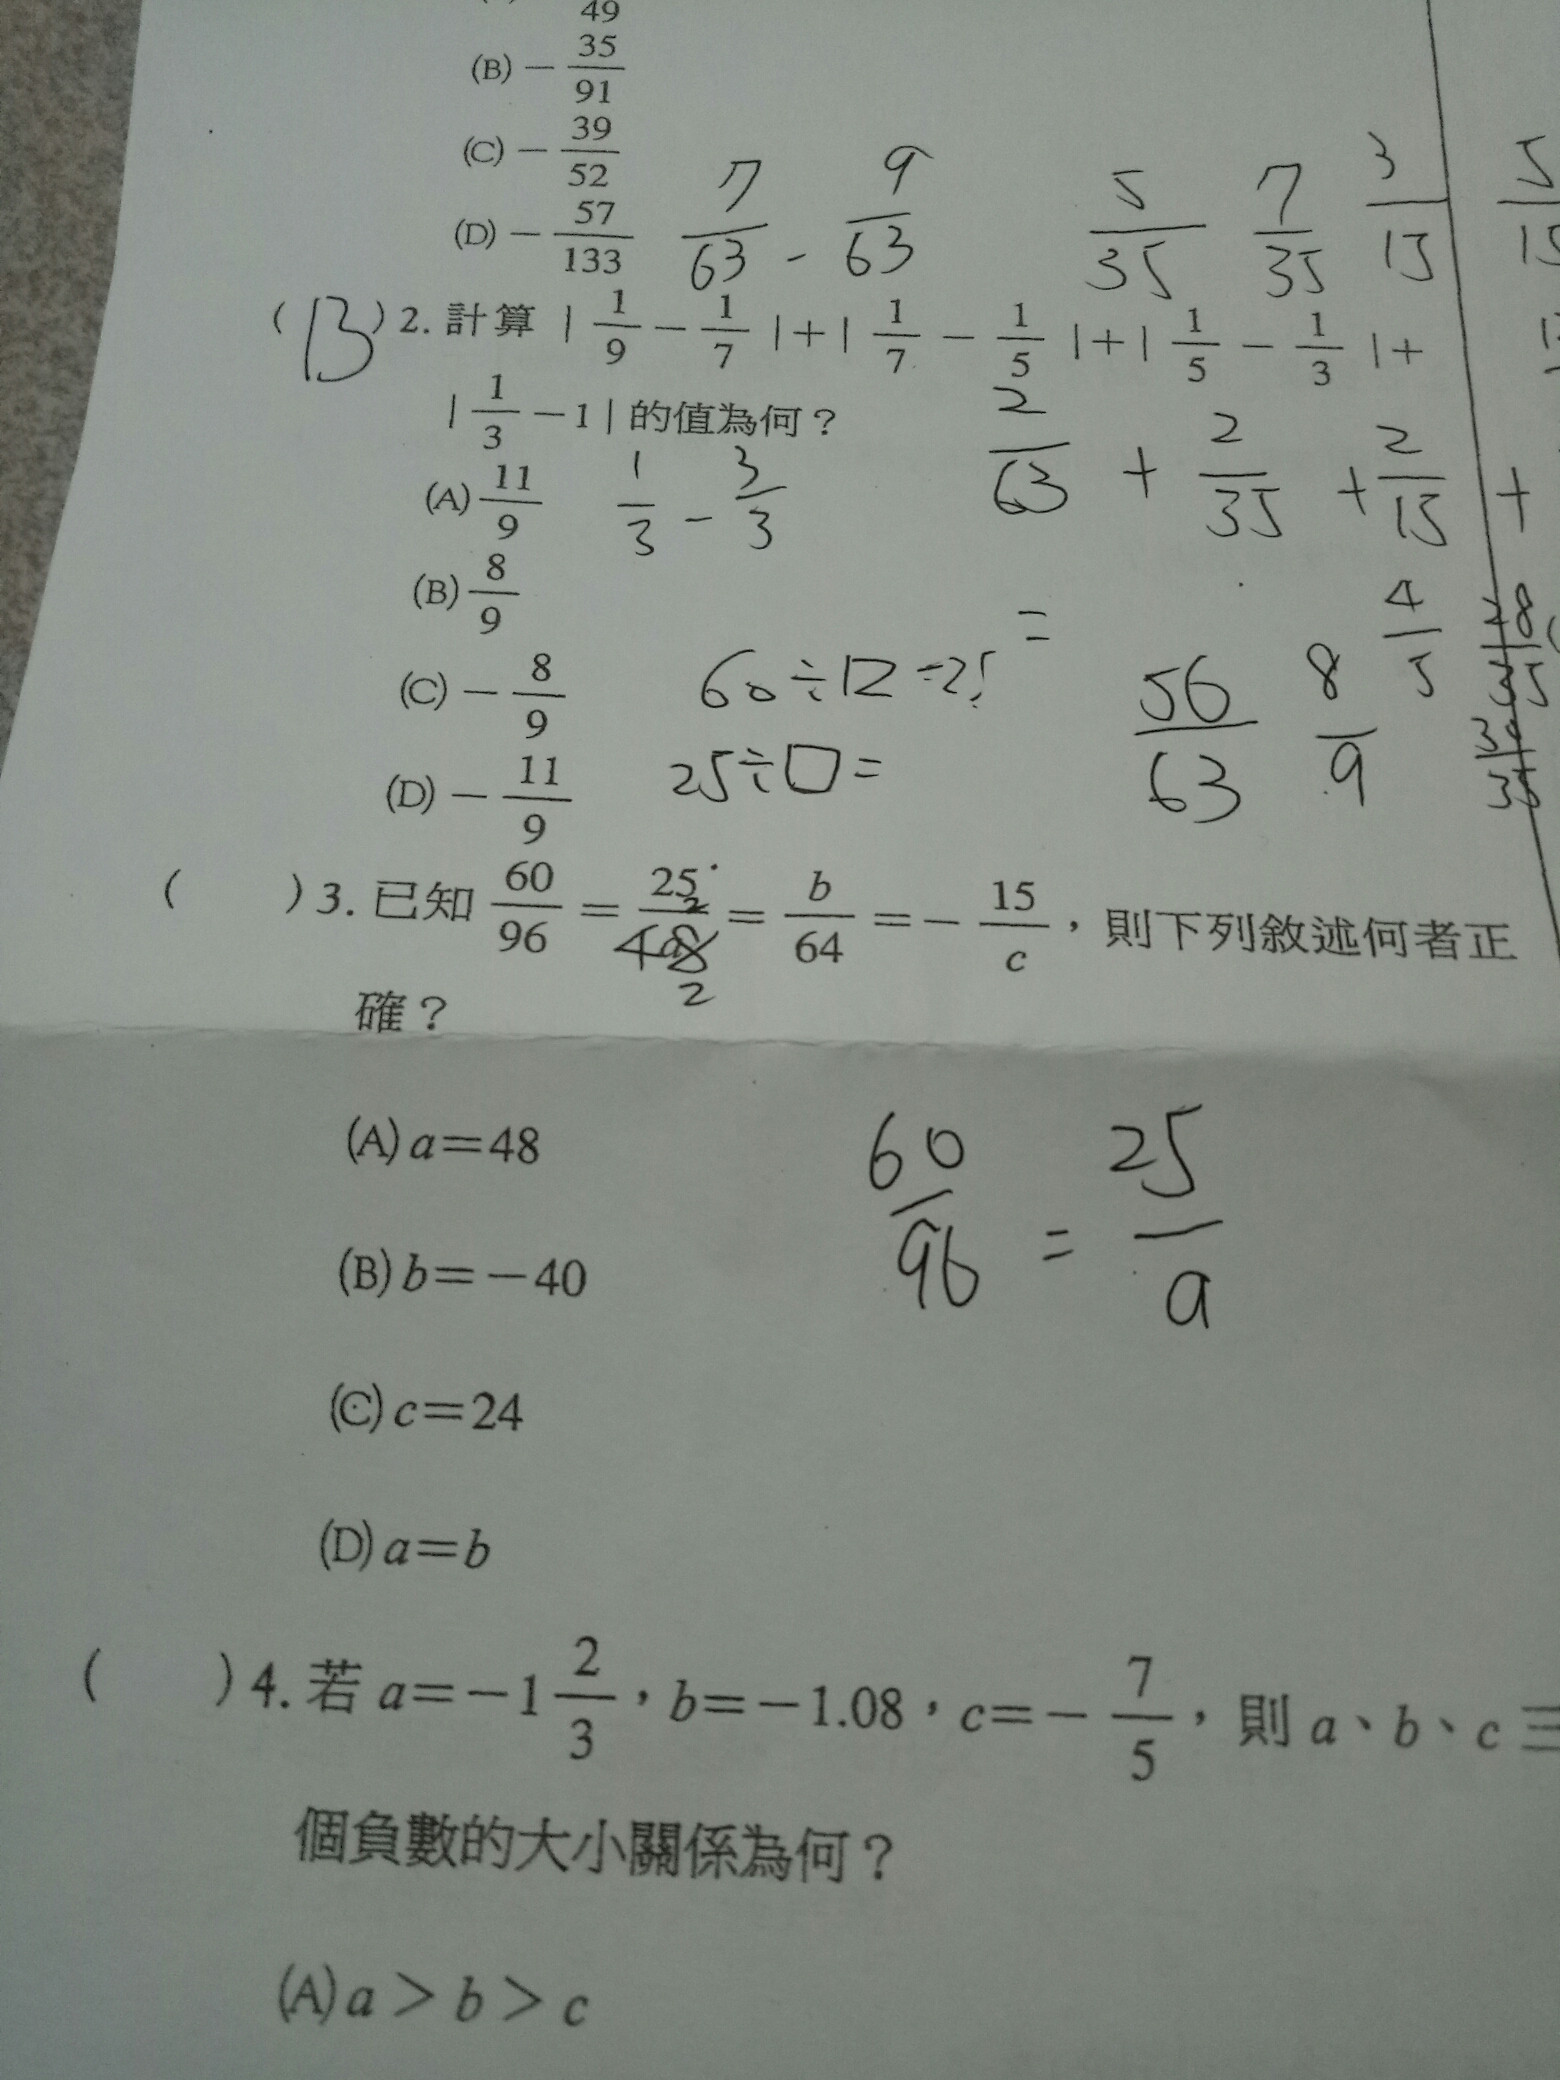 49
(B) − 35/91
(C) − 39/52
(D) − 57/133
7/63 - 9/63
5/35 7/35 3/15 5/15
(B) 2. 計算 | 1/9 − 1/7 | + | 1/7 − 1/5 | + | 1/5 − 1/3 | +
| 1/3 − 1 | 的值為何？
2/63 + 2/35 + 2/15 +
(A) 11/9
1/3 - 3/3
(B) 8/9
=
4/5
(C) − 8/9
60÷12
56/63 8/9
(D) − 11/9
25÷□=
( ) 3. 已知 60/96 = 25/a = b/64 = − 15/c，則下列敘述何者正
確？
(A) a＝48
60/96 = 25/a
(B) b＝−40
(C) c＝24
(D) a＝b
( ) 4. 若 a＝−1 2/3，b＝−1.08，c＝− 7/5，則 a、b、c 三
個負數的大小關係為何？
(A) a > b > c